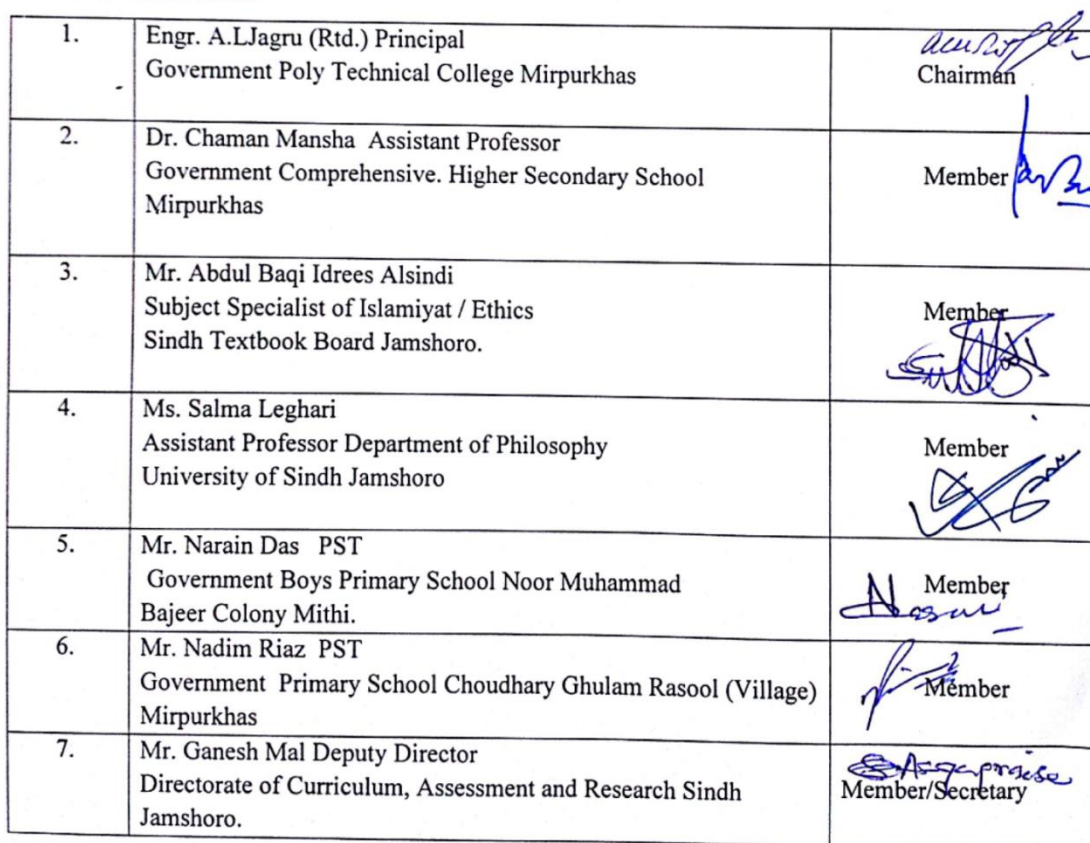 1.
Engr. A.LJagru (Rtd.) Principal
Government Poly Technical College Mirpurkhas
Chairman
2.
Dr. Chaman Mansha Assistant Professor
Government Comprehensive. Higher Secondary School
Mirpurkhas
Member
3.
Mr. Abdul Baqi Idrees Alsindi
Subject Specialist of Islamiyat / Ethics
Sindh Textbook Board Jamshoro.
Member
4.
Ms. Salma Leghari
Assistant Professor Department of Philosophy
University of Sindh Jamshoro
Member
5.
Mr. Narain Das PST
Government Boys Primary School Noor Muhammad
Bajeer Colony Mithi.
Member
6.
Mr. Nadim Riaz PST
Government Primary School Choudhary Ghulam Rasool (Village)
Mirpurkhas
Member
7.
Mr. Ganesh Mal Deputy Director
Directorate of Curriculum, Assessment and Research Sindh
Jamshoro.
Member/Secretary